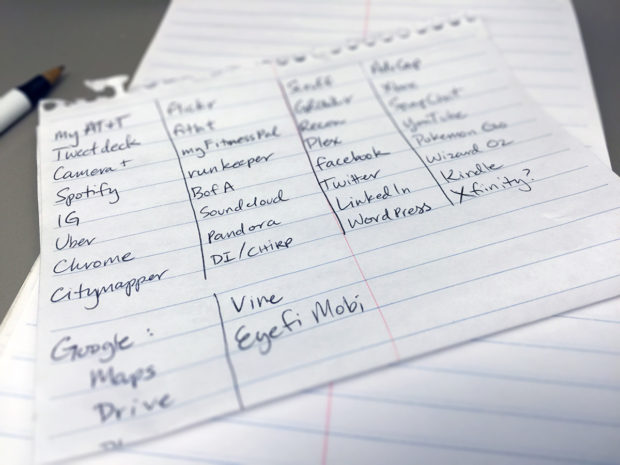 My AT+T
Tweetdeck
Camera+
Spotify
IG
Uber
Chrome
Citymapper
Flickr
fitbit
myFitnessPal
runkeeper
BofA
Soundcloud
Pandora
DI/CHIRP
Scruff
Grindr
Recon
Plex
facebook
Twitter
LinkedIn
WordPress
Xbox
SnapChat
YouTube
Pokemon Go
Wizard Oz
Kindle
Xfinity?
Google:
Maps
Drive
Vine
Eyefi Mobi